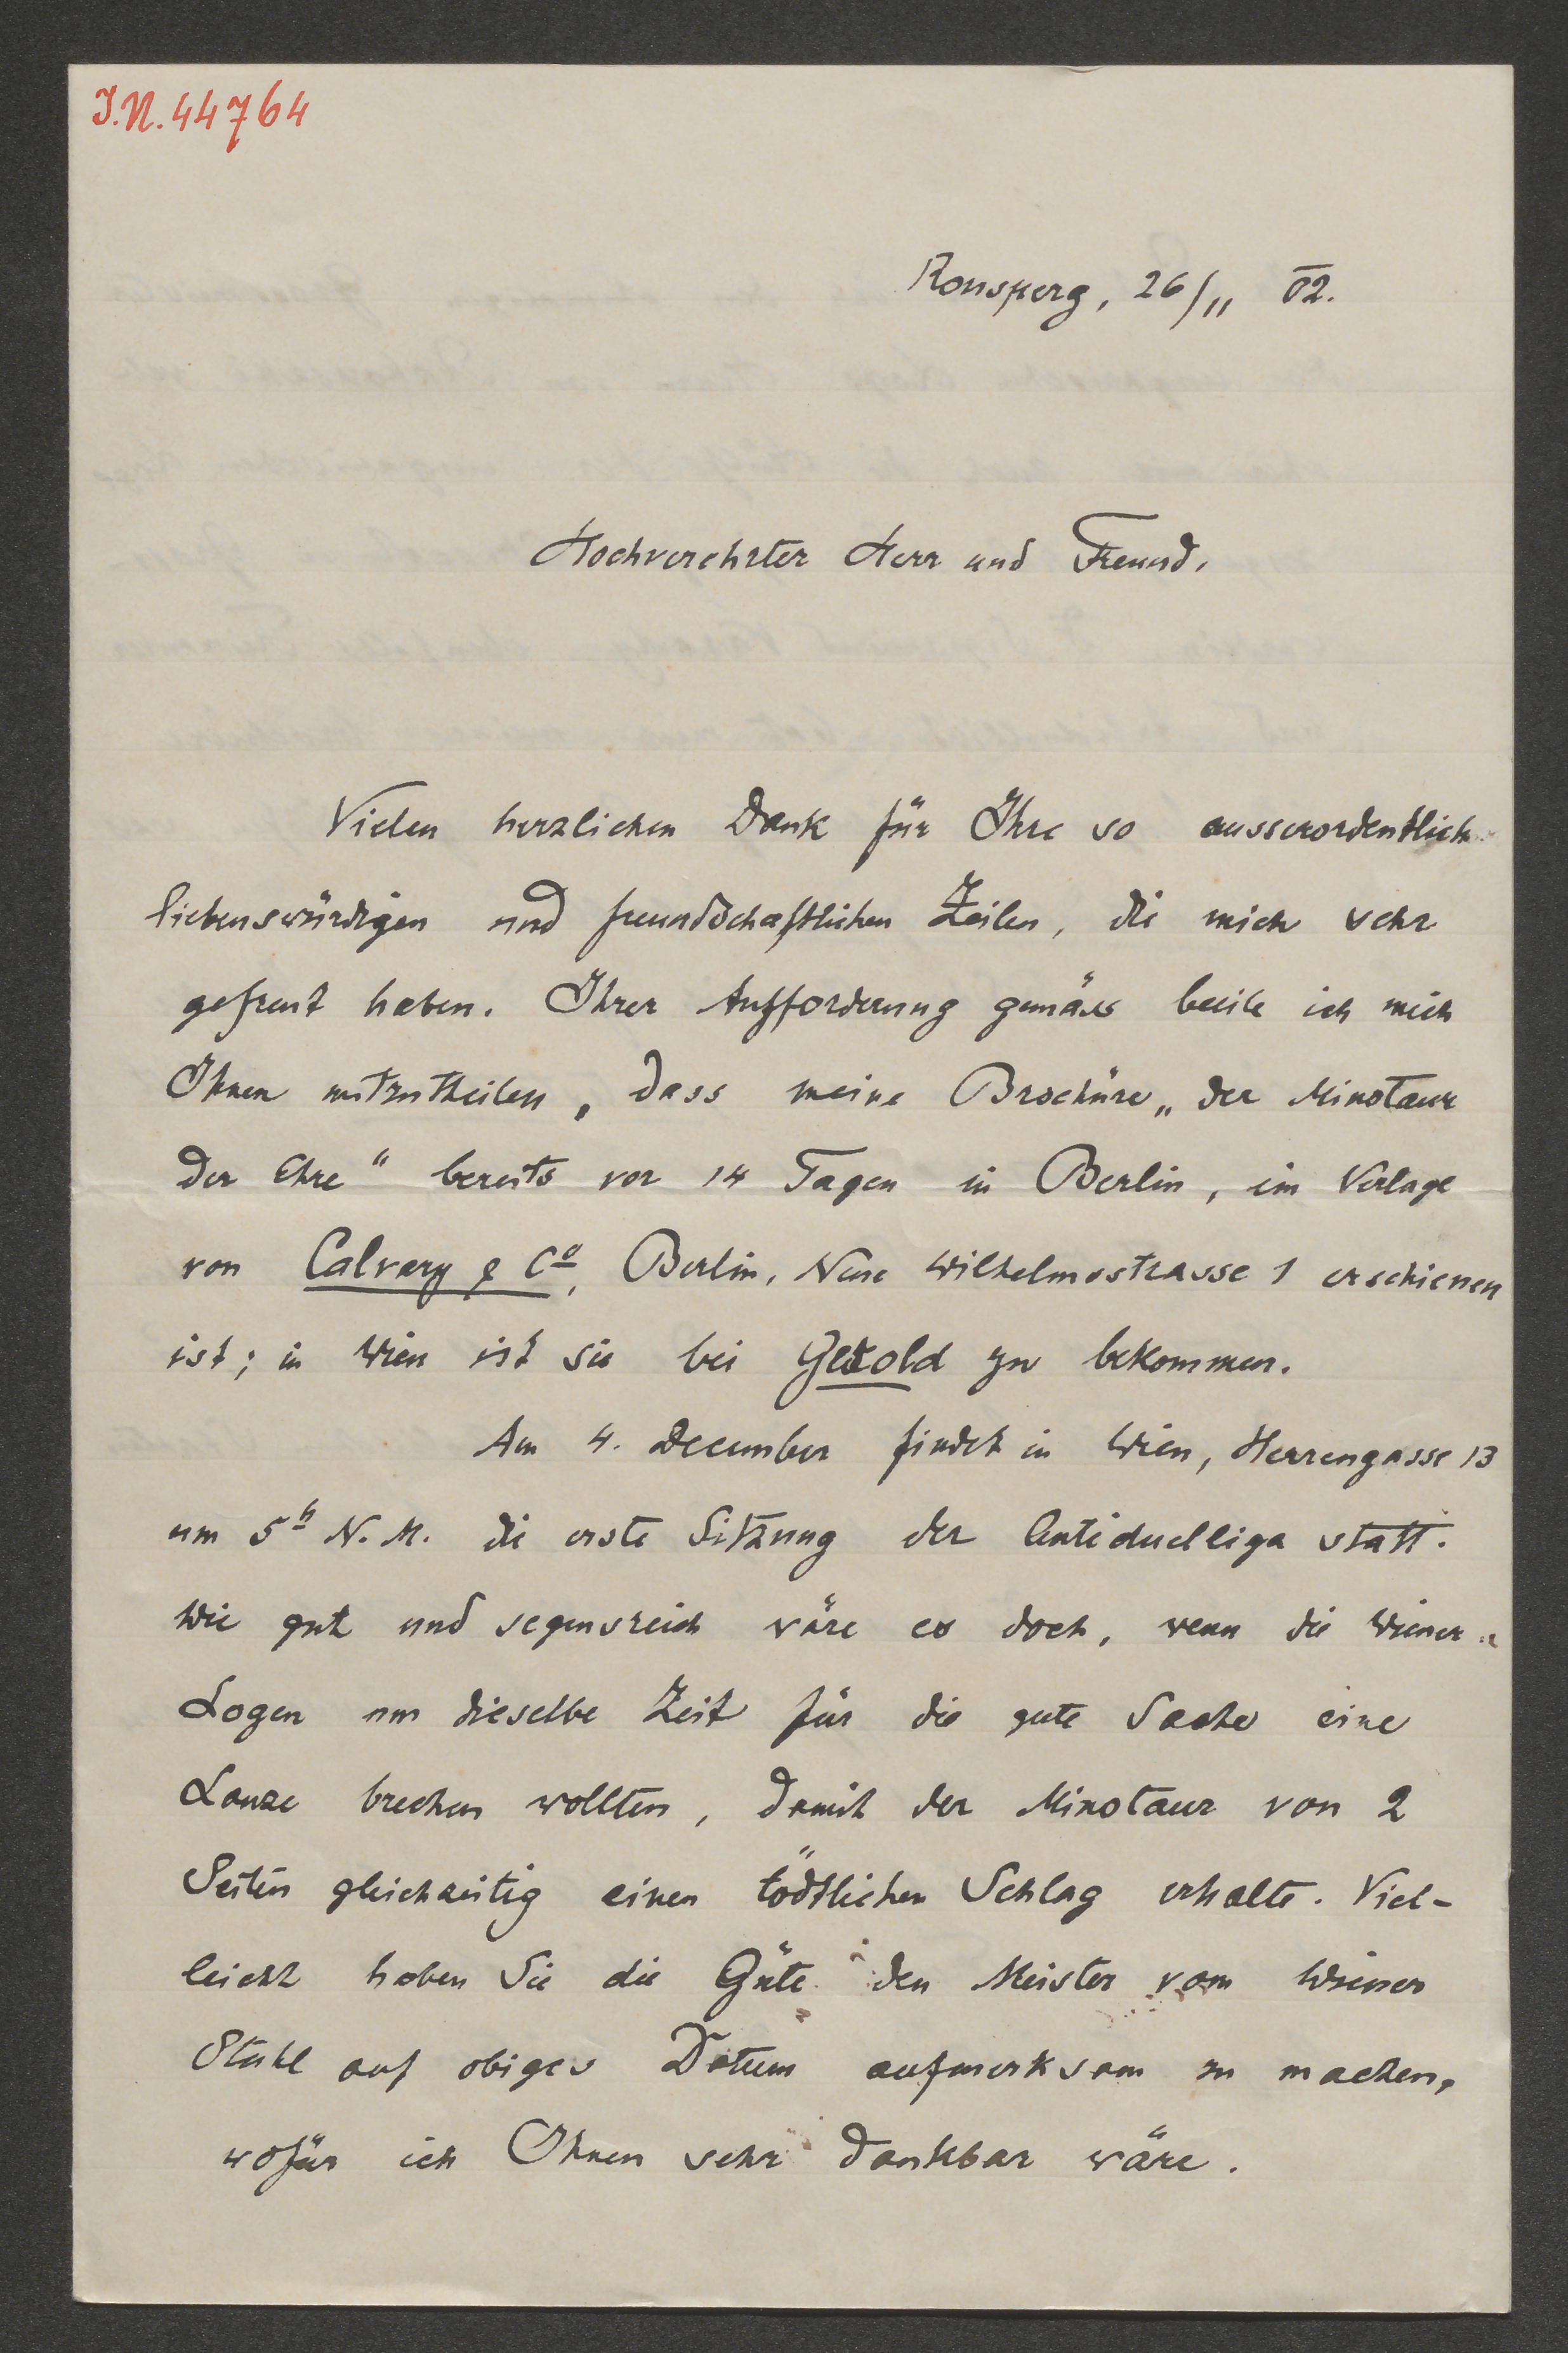 I.N. 44764
Ronsperg, 26/11 02.
Hochverehrter Herr und Freund,
Vielen herzlichen Dank für Ihre so ausserordentlich
liebenswürdigen und freundschaftlichen Zeilen, die mich sehr
gefreut haben. Ihrer Aufforderung gemäss beeile ich mich
Ihnen mitzutheilen, dass meine Brochüre „der Minotaur
der Ehre“ bereits vor 14 Tagen in Berlin, im Verlage
von Calvary & Co, Berlin, Neue Wilhelmstrasse 1 erschienen
ist; in Wien ist sie bei Gerold zu bekommen.
Am 4. December findet in Wien, Herrengasse 13
um 5h N.M. die erste Sitzung der Antiduelliga statt.
Wie gut und segensreich wäre es doch, wenn die Wiener
Logen um dieselbe Zeit für die gute Sache eine
Lanze brechen wollten, damit der Minotaur von 2
Seiten gleichzeitig einen tödtlichen Schlag erhalte. Viel-
leicht haben Sie die Güte den Meister vom Wiener
Stuhl auf obiges Datum aufmerksam zu machen,
wofür ich Ihnen sehr dankbar wäre.